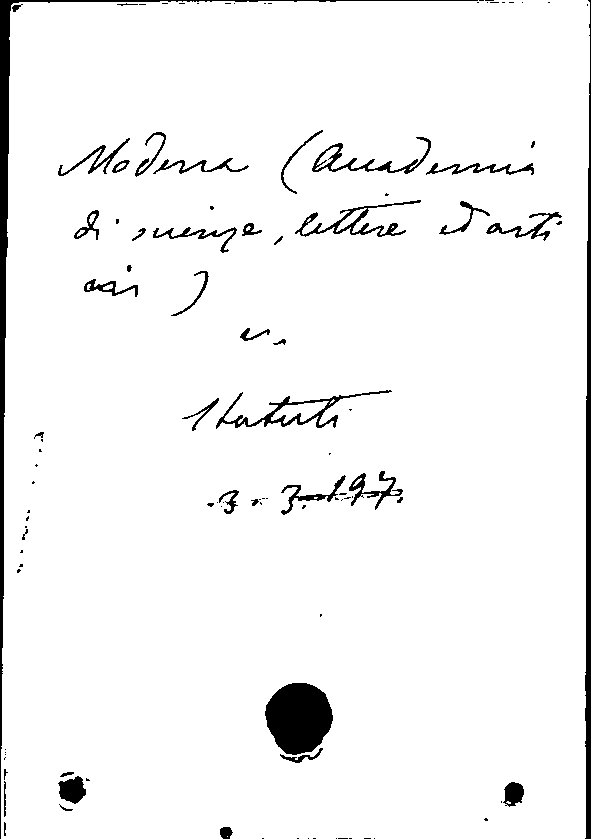 Modena (Accademia
di scienze, lettere ed arti
in)
v.
Statuti
3. 3. 197.